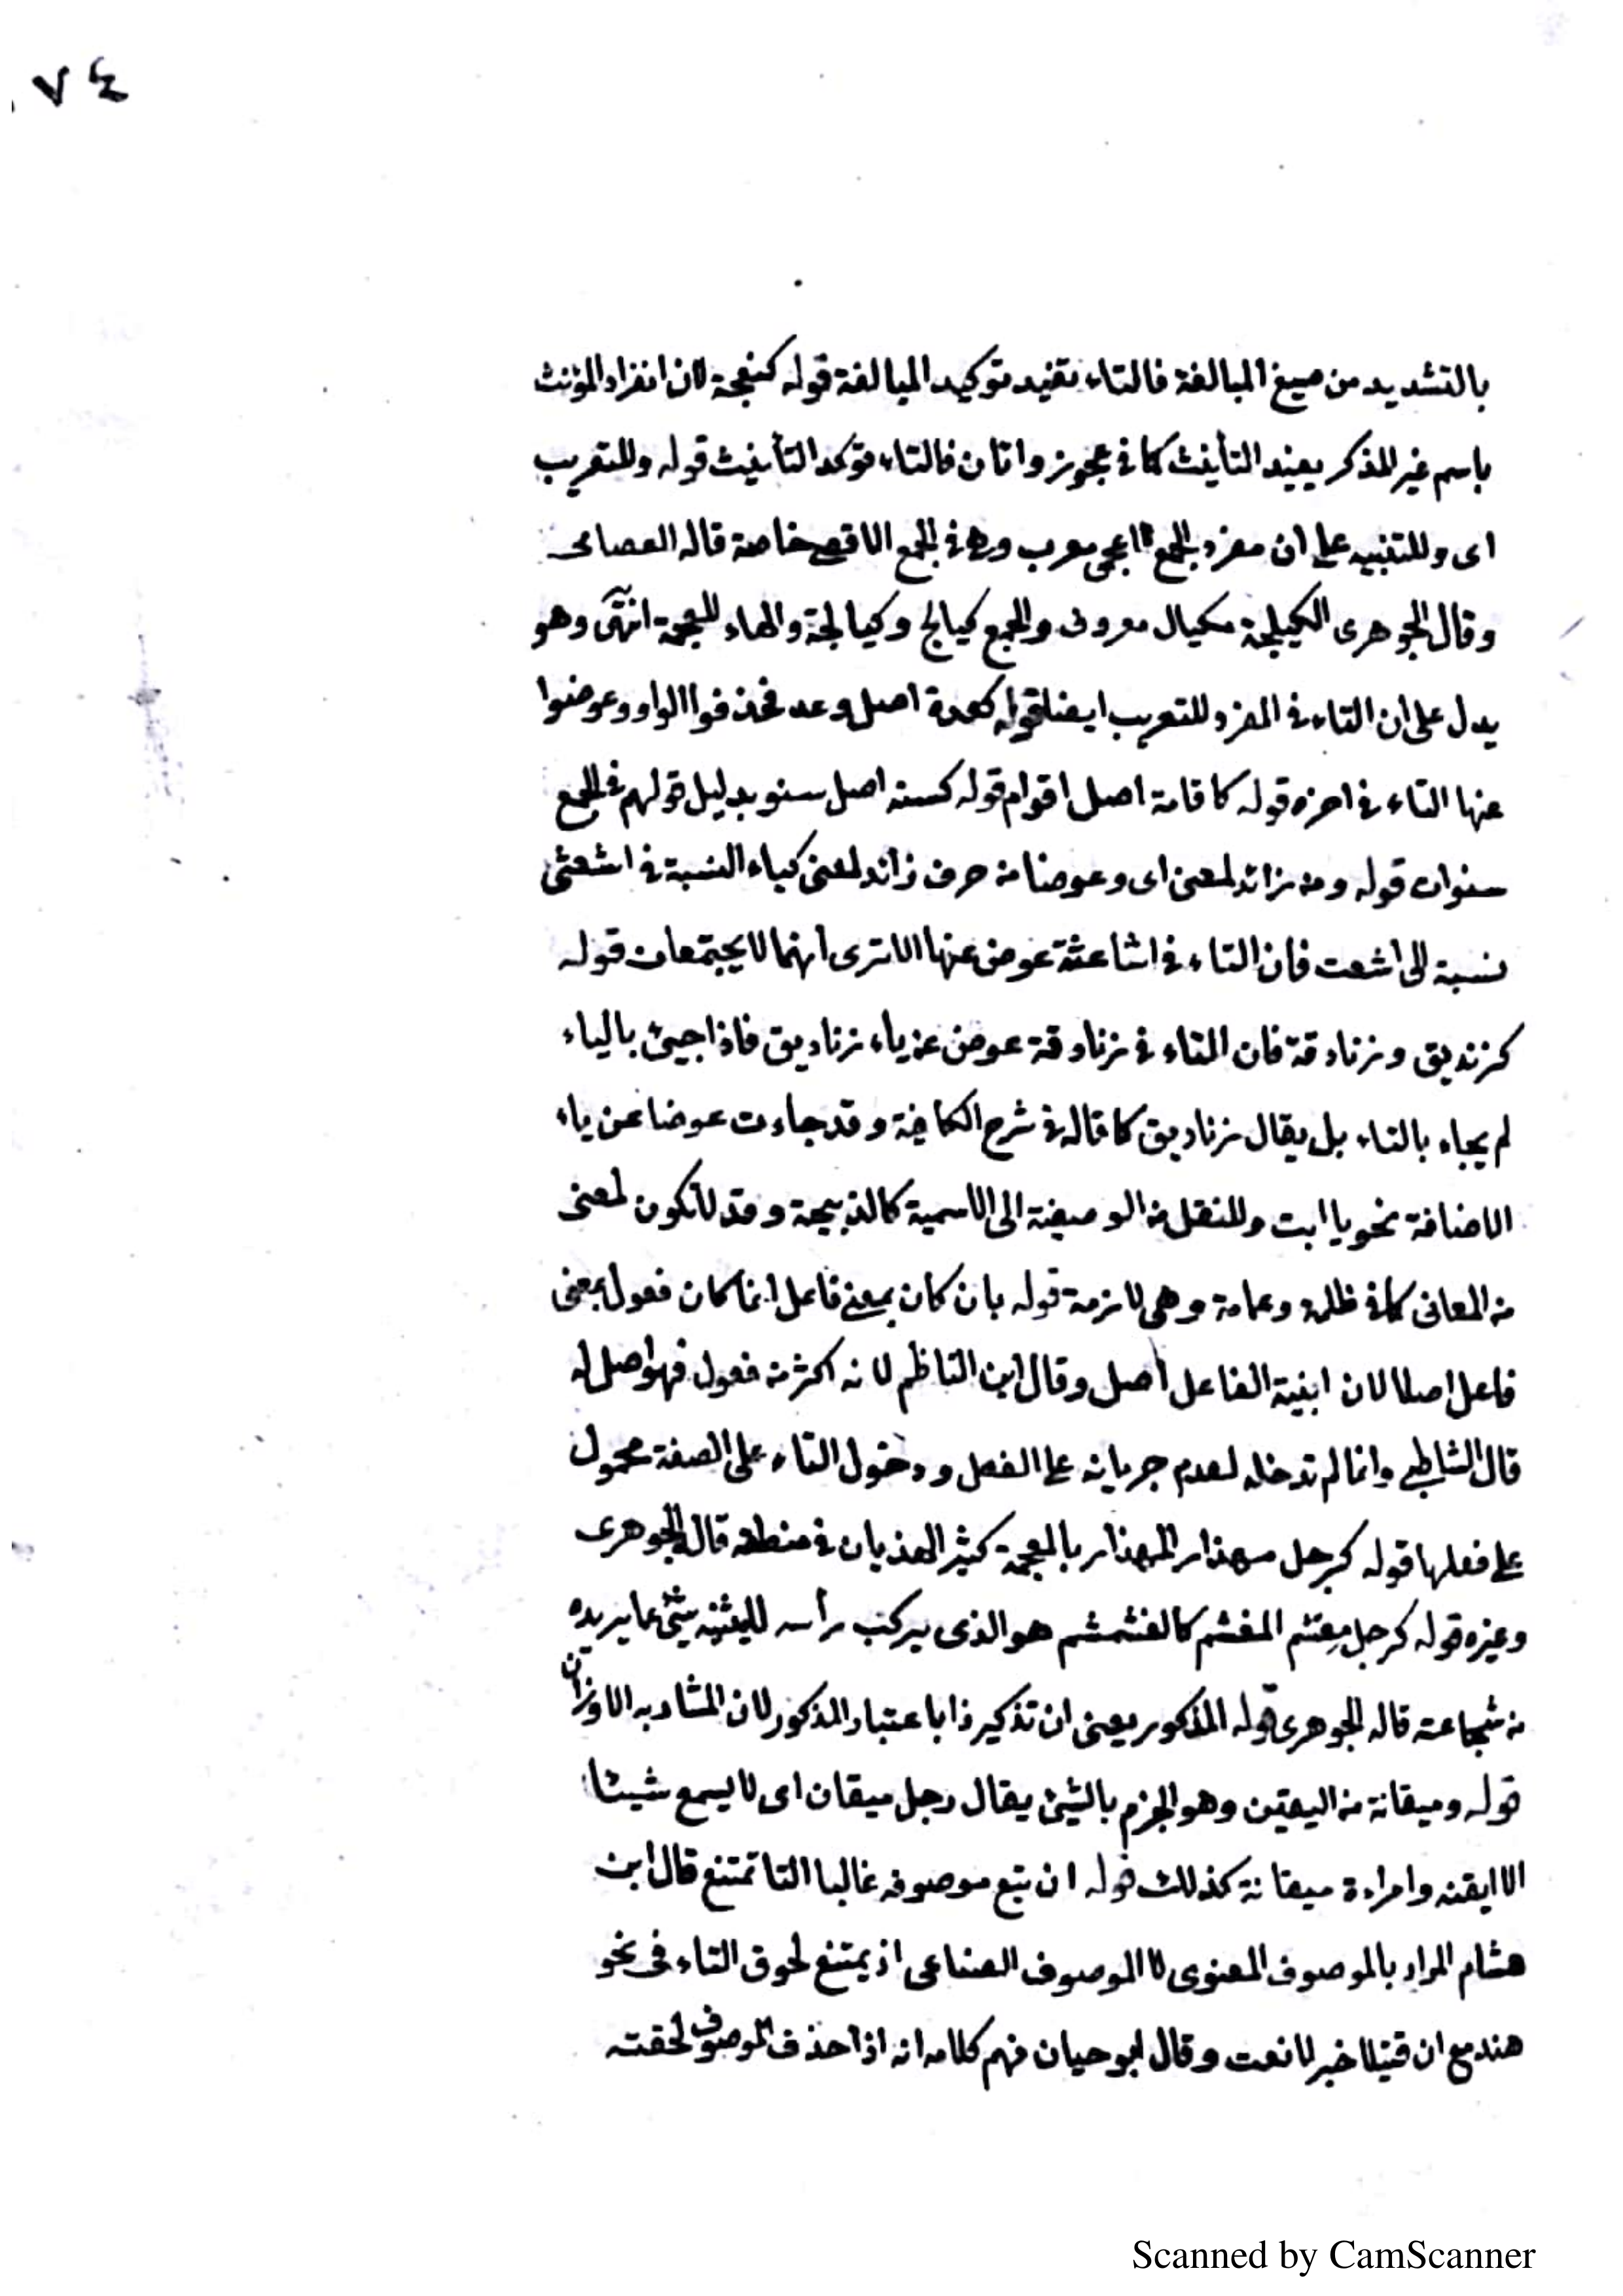 ٧٤
بالتشديد من صيغ المبالغة فالتاء تفيد توكيد المبالغة قوله كنعجة لان انفراد المؤنث
باسم غير المذكر يفيد التأنيث كما في عجوز واتان فالتاء توكد التأنيث قوله وللتعريب
اى وللتنبيه على ان مفرد الجمع اعجمي معرب وها في الجمع الاقصى خاصة قاله العصامى
وقال الجوهرى الكيلجة مكيال معروف والجمع كيالج وكيالجة والهاء للعجمة انتهى وهو
يدل على ان التاء في المفرد للتعريب ايضا قوله كعدة اصل وعد فحذفوا الواو وعوضوا
عنها التاء في اخره قوله كاقامة اصل اقوام قوله كسنه اصل سنو بدليل قولهم في الجمع
سنوات قوله ومن زائد لمعنى اى وعوضا من حرف زائد لمعنى كياء النسبة في اشعثى
نسبة الى اشعت فان التاء في اشاعثة عوض عنها الاترى أنهما لا يجتمعان قوله
كزنديق وزنادقة فان التاء في زنادقة عوض عن ياء زناديق فاذا جيئ بالياء
لم يجاء بالتاء بل يقال زناديق كما قاله في شرح الكافية وقد جاءت عوضا عن ياء
الاضافة نحو يا ابت وللنقل من الوصفية الى الاسمية كالذبيحة وقد لاتكون لمعنى
من المعانى كما في ظلمة وعمامة وهى لازمة قوله بان كان بمعنى فاعل انما كان فعول بمعنى
فاعل اصلا لان ابنية الفاعل أصل وقال ابن الناظم لانه اكثر من فعول فهو اصل له
قال الشاطبي وانما لم تدخله لعدم جريانه على الفعل ودخول التاء على الصفة محمول
على فعلها قوله كرجل مهذار المهذار بالمعجمة كثير الهذيان في منطقه قال الجوهرى
وغيره قوله كرجل مِغشم المغشم كالغشمشم هو الذى يركب رأسه لا يثنيه شيئ عما يريده
من شجاعته قاله الجوهرى قوله المذكور يعنى ان تذكير ذا باعتبار المذكور لان المشار به الاوزان
قوله وميقانة من اليقين وهو الجزم بالشيئ يقال رجل ميقان اى لا يسمع شيئا
الا ايقنه وامراءة ميقانة كذلك قوله ان تبع موصوفه غالبا التا تمتنع قال ابن
هشام المراد بالموصوف المعنوى لا الموصوف الصناعى اذ يمتنع لحوق التاء فى نحو
هند مع ان قتيلا خبر لا نعت وقال ابو حيان فهم كلامه انه اذا حذف الموصوف لحقته
Scanned by CamScanner